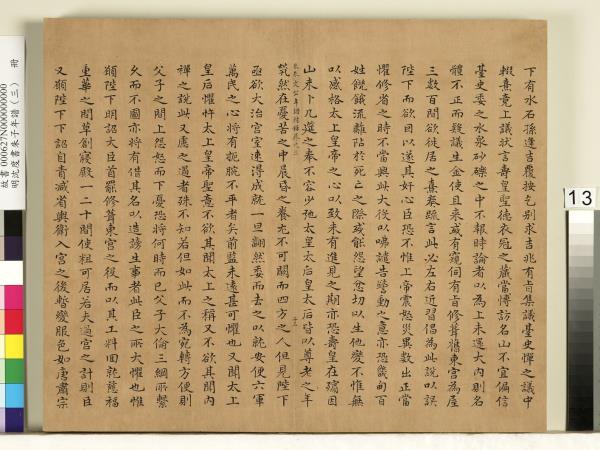 下有水石孫逢吉覆按乞别求吉兆有旨集議臺史憚之議中
輟熹竟上議狀言壽皇聖德衣冠之藏當博訪名山不宜偏信
臺史委之水泉砂礫之中不報時論者以為上未還大內則名
體不正而疑議生金使且来或有窺伺有旨修葺舊東宮為屋
三數百間欲徙居之熹奏疏言此必左右近習倡為此說以誤
陛下而欲因以遂其奸心臣恐不惟上帝震怒災異數出正當
懼修省之時不當興此大役以咈譴告警動之意亦恐畿甸百
姓饑餓流離阽於死亡之際或能怨望忿切以生他變不惟無
以感格太上皇帝之心以致未有進見之期亦恐壽皇在殯因
山未卜几筵之奉不容少弛太皇太后皇太后皆以尊老之年
煢然在憂苦之中晨昏之養尤不可闕而四方之人但見陛下
亟欲大治宮室速得成就一旦翩然委而去之以就安便六軍
萬民之心將有扼腕不平者矣前鑑未遠甚可懼也又聞太上
皇后懼忤太上皇帝聖意不欲其聞太上之稱又不欲其聞內
禪之說此又慮之過者殊不知若但如此而不為宛轉方便則
父子之間上怨怒而下憂恐將何時而已父子大倫三綱所繫
久而不圖亦將有借其名以造謗生事者此臣之所大懼也惟
願陛下明詔大臣首罷修葺東宮之役而以其工料回就慈福
重華之間草創寢殿一二十間使粗可居若夫過宮之計則臣
又願陛下下詔自責減省輿衛入宮之後暫變服色如唐肅宗
13
明沈度書朱子年譜（三） 冊
故書000627N000000000